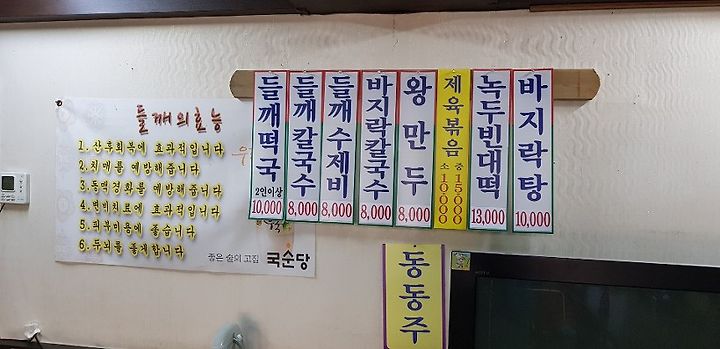 들깨의효능
1. 산후회복에 효과적입니다
2. 치매를 예방해줍니다
3. 동맥경화를 예방해줍니다
4. 변비치료에 효과적입니다
5. 피부미용에 좋습니다
6. 두뇌를 좋게합니다
좋은 술의 고집 국순당
들깨떡국
2인이상
10,000
들깨칼국수
8,000
들깨수제비
8,000
바지락칼국수
8,000
왕만두
8,000
제육볶음
중 15000
소 10000
녹두빈대떡
13,000
바지락탕
10,000
동동주